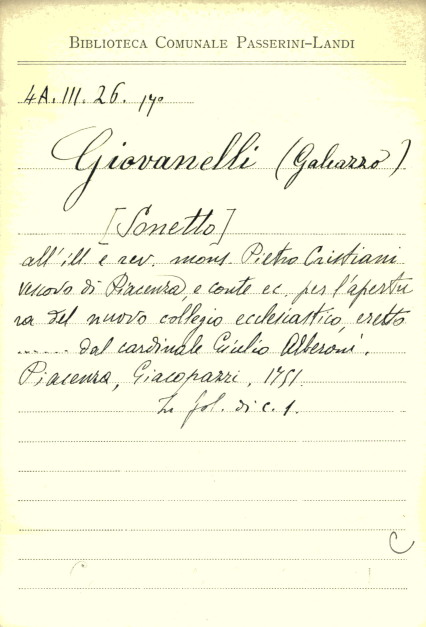 BIBLIOTECA COMUNALE PASSERINI-LANDI
4A. III. 26. 17º
Giovanelli (Galeazzo)
[Sonetto]
all'ill. e rev. mons. Pietro Cristiani
vescovo di Piacenza, e conte ec. per l'apertu
ra del nuovo collegio ecclesiastico, eretto
...... dal cardinale Giulio Alberoni.
Piacenza, Giacopazzi, 1751.
In fol. di c. 1.
C